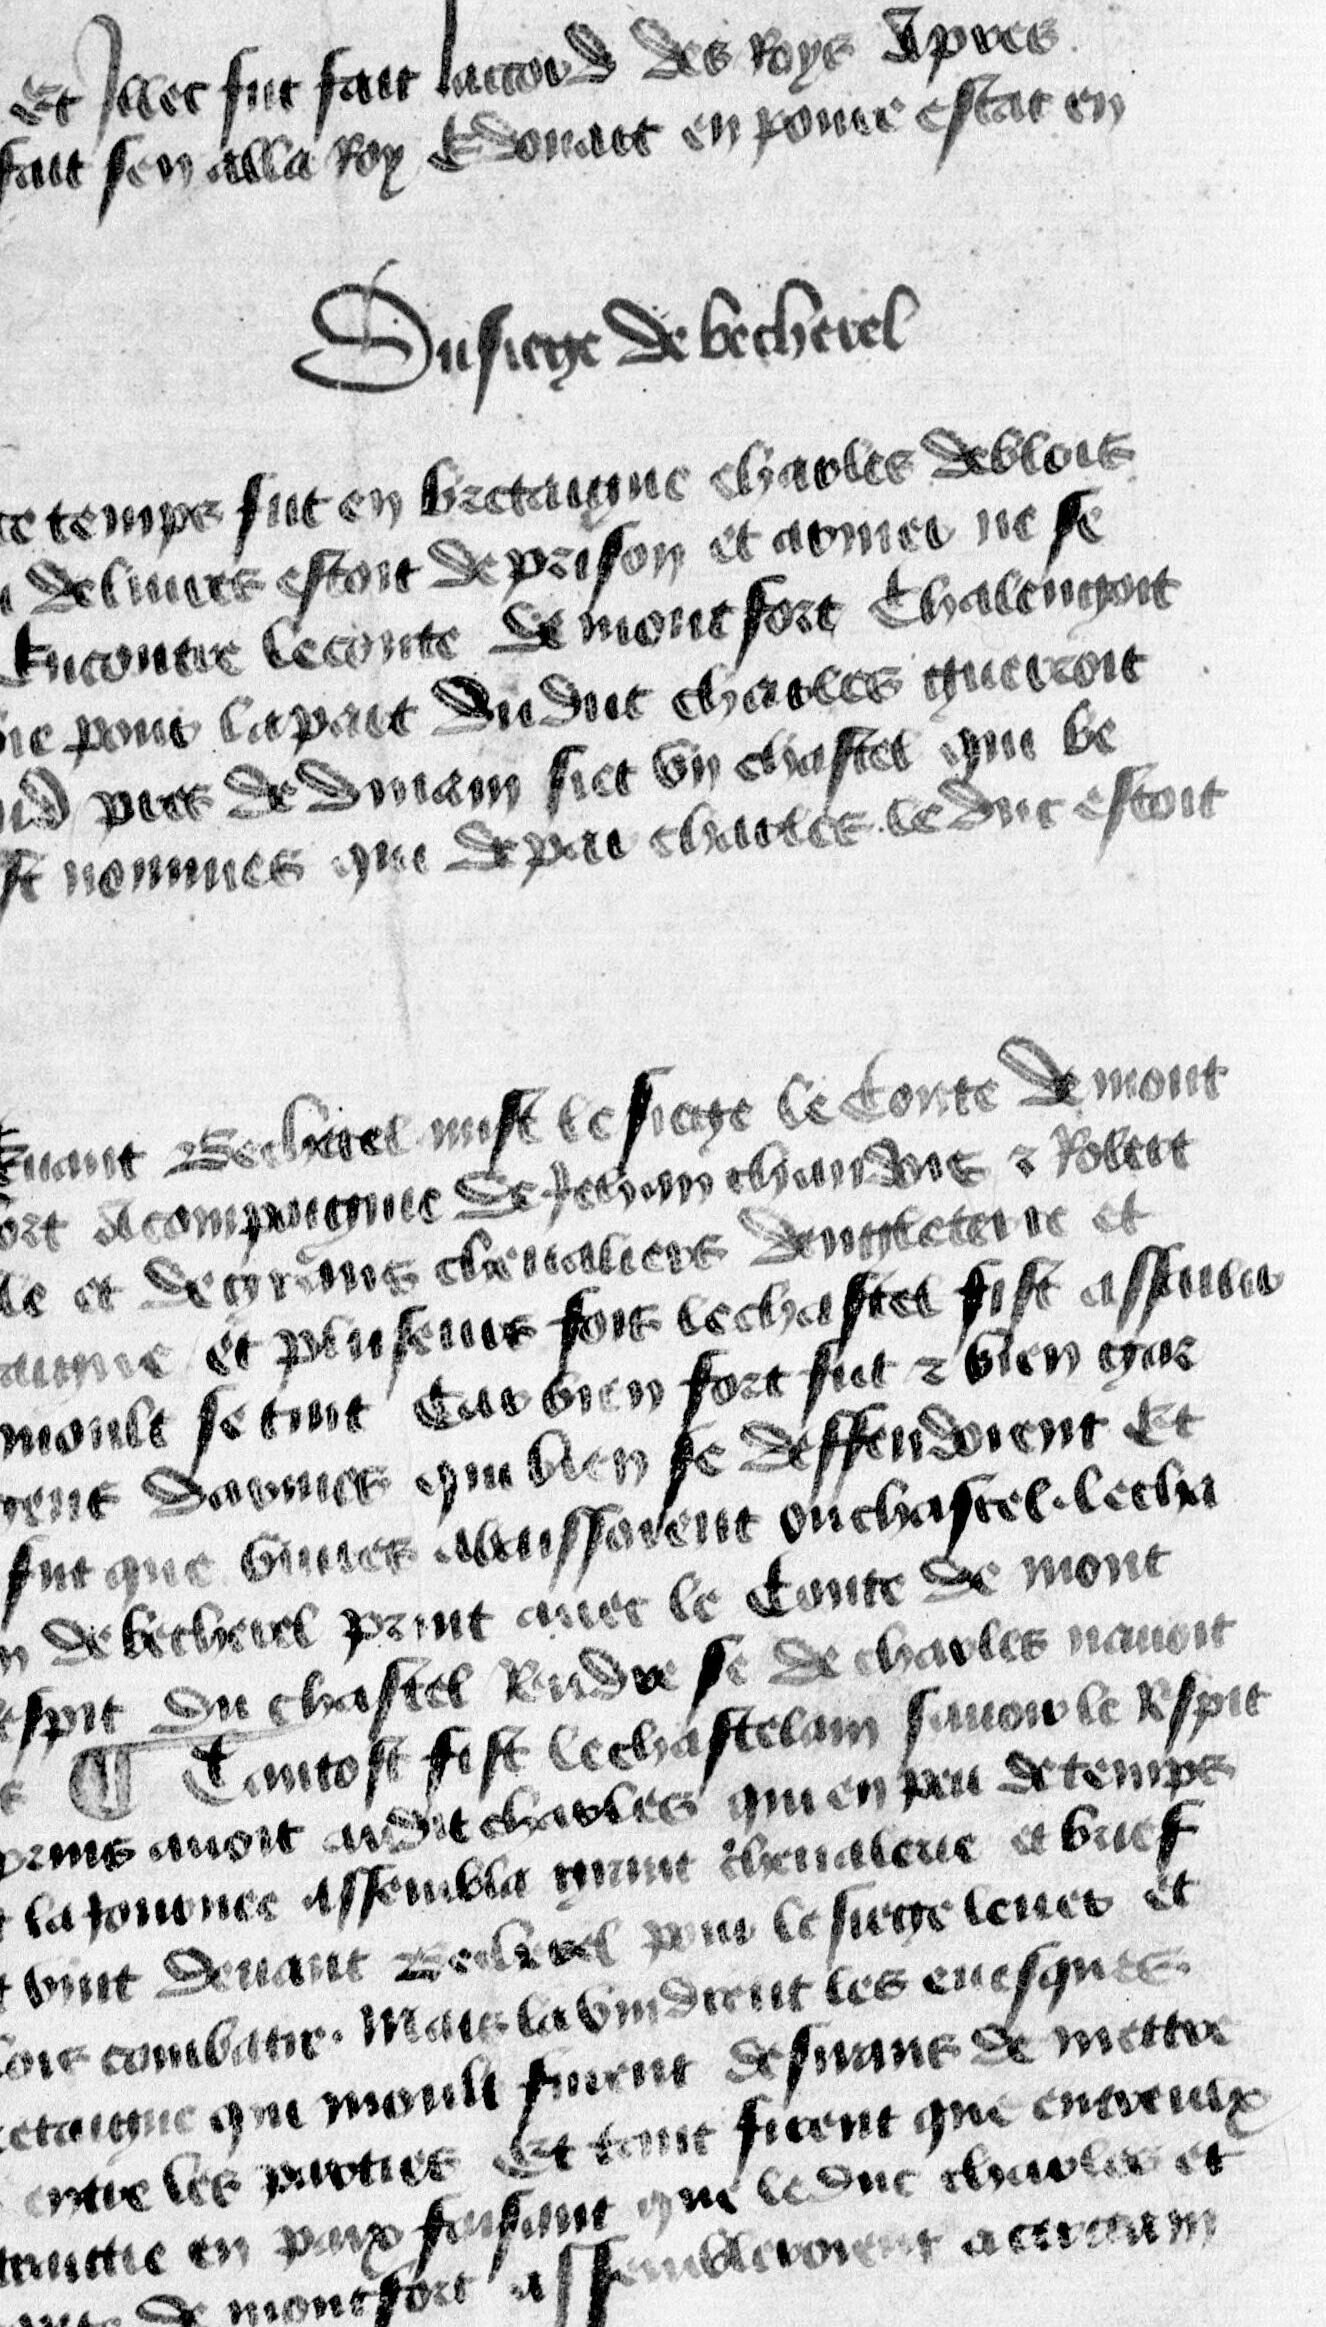 Et Illec fut fait laccord des Roys Apres
fait sen alla Roy Edouart en poure estat en
Du siege de becherel
ce temps fut en bretaigne charles de blois
deliures estoit de prison et armer ne se
Encontre le conte de montfort Chalengoit
pour la part du duc charles guerroit
pres de dinam siet vn chastel que be
st nommes que de par charles le duc estoit
Becherel mist le siege le Conte de mont
ort Acompaigne de Jehan chandois & Robert
le et de grans cheualiers dengleterre et
aigne Et pluseurs fois le chastel fist assalir
moult se tint Car bien fort fut & bien gar
gens darmes qui bien se deffendoient Et
fut que viures abaissoient ou chastel. le cha
n de becherel print auec le Conte de mont
espit du chastel Rendre se de charles nauoit
s ¶ Tantost fist le chastelain sauoir le Respit
prins auoit audit charles qui en peu de temps
la Journee assembla grant cheualerie et brief
t vint deuant Becherel pour le siege leuer et
lois combatre. Mais la vindrent les euesques
etaigne qui moult furent desirans de mettre
entre les parties Et tant firent que entreulx
traictie en paix faisant que le duc charles et
de montfort assembleroient a certain